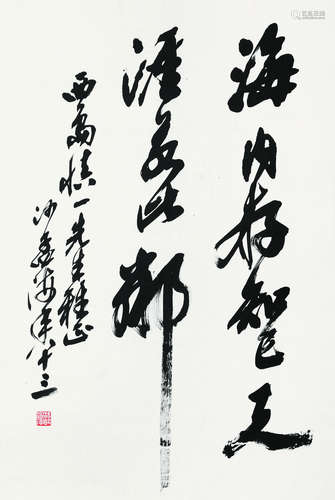 海内存知己天
涯若比鄰
西島慎一先生雅正
沙孟海年八十三